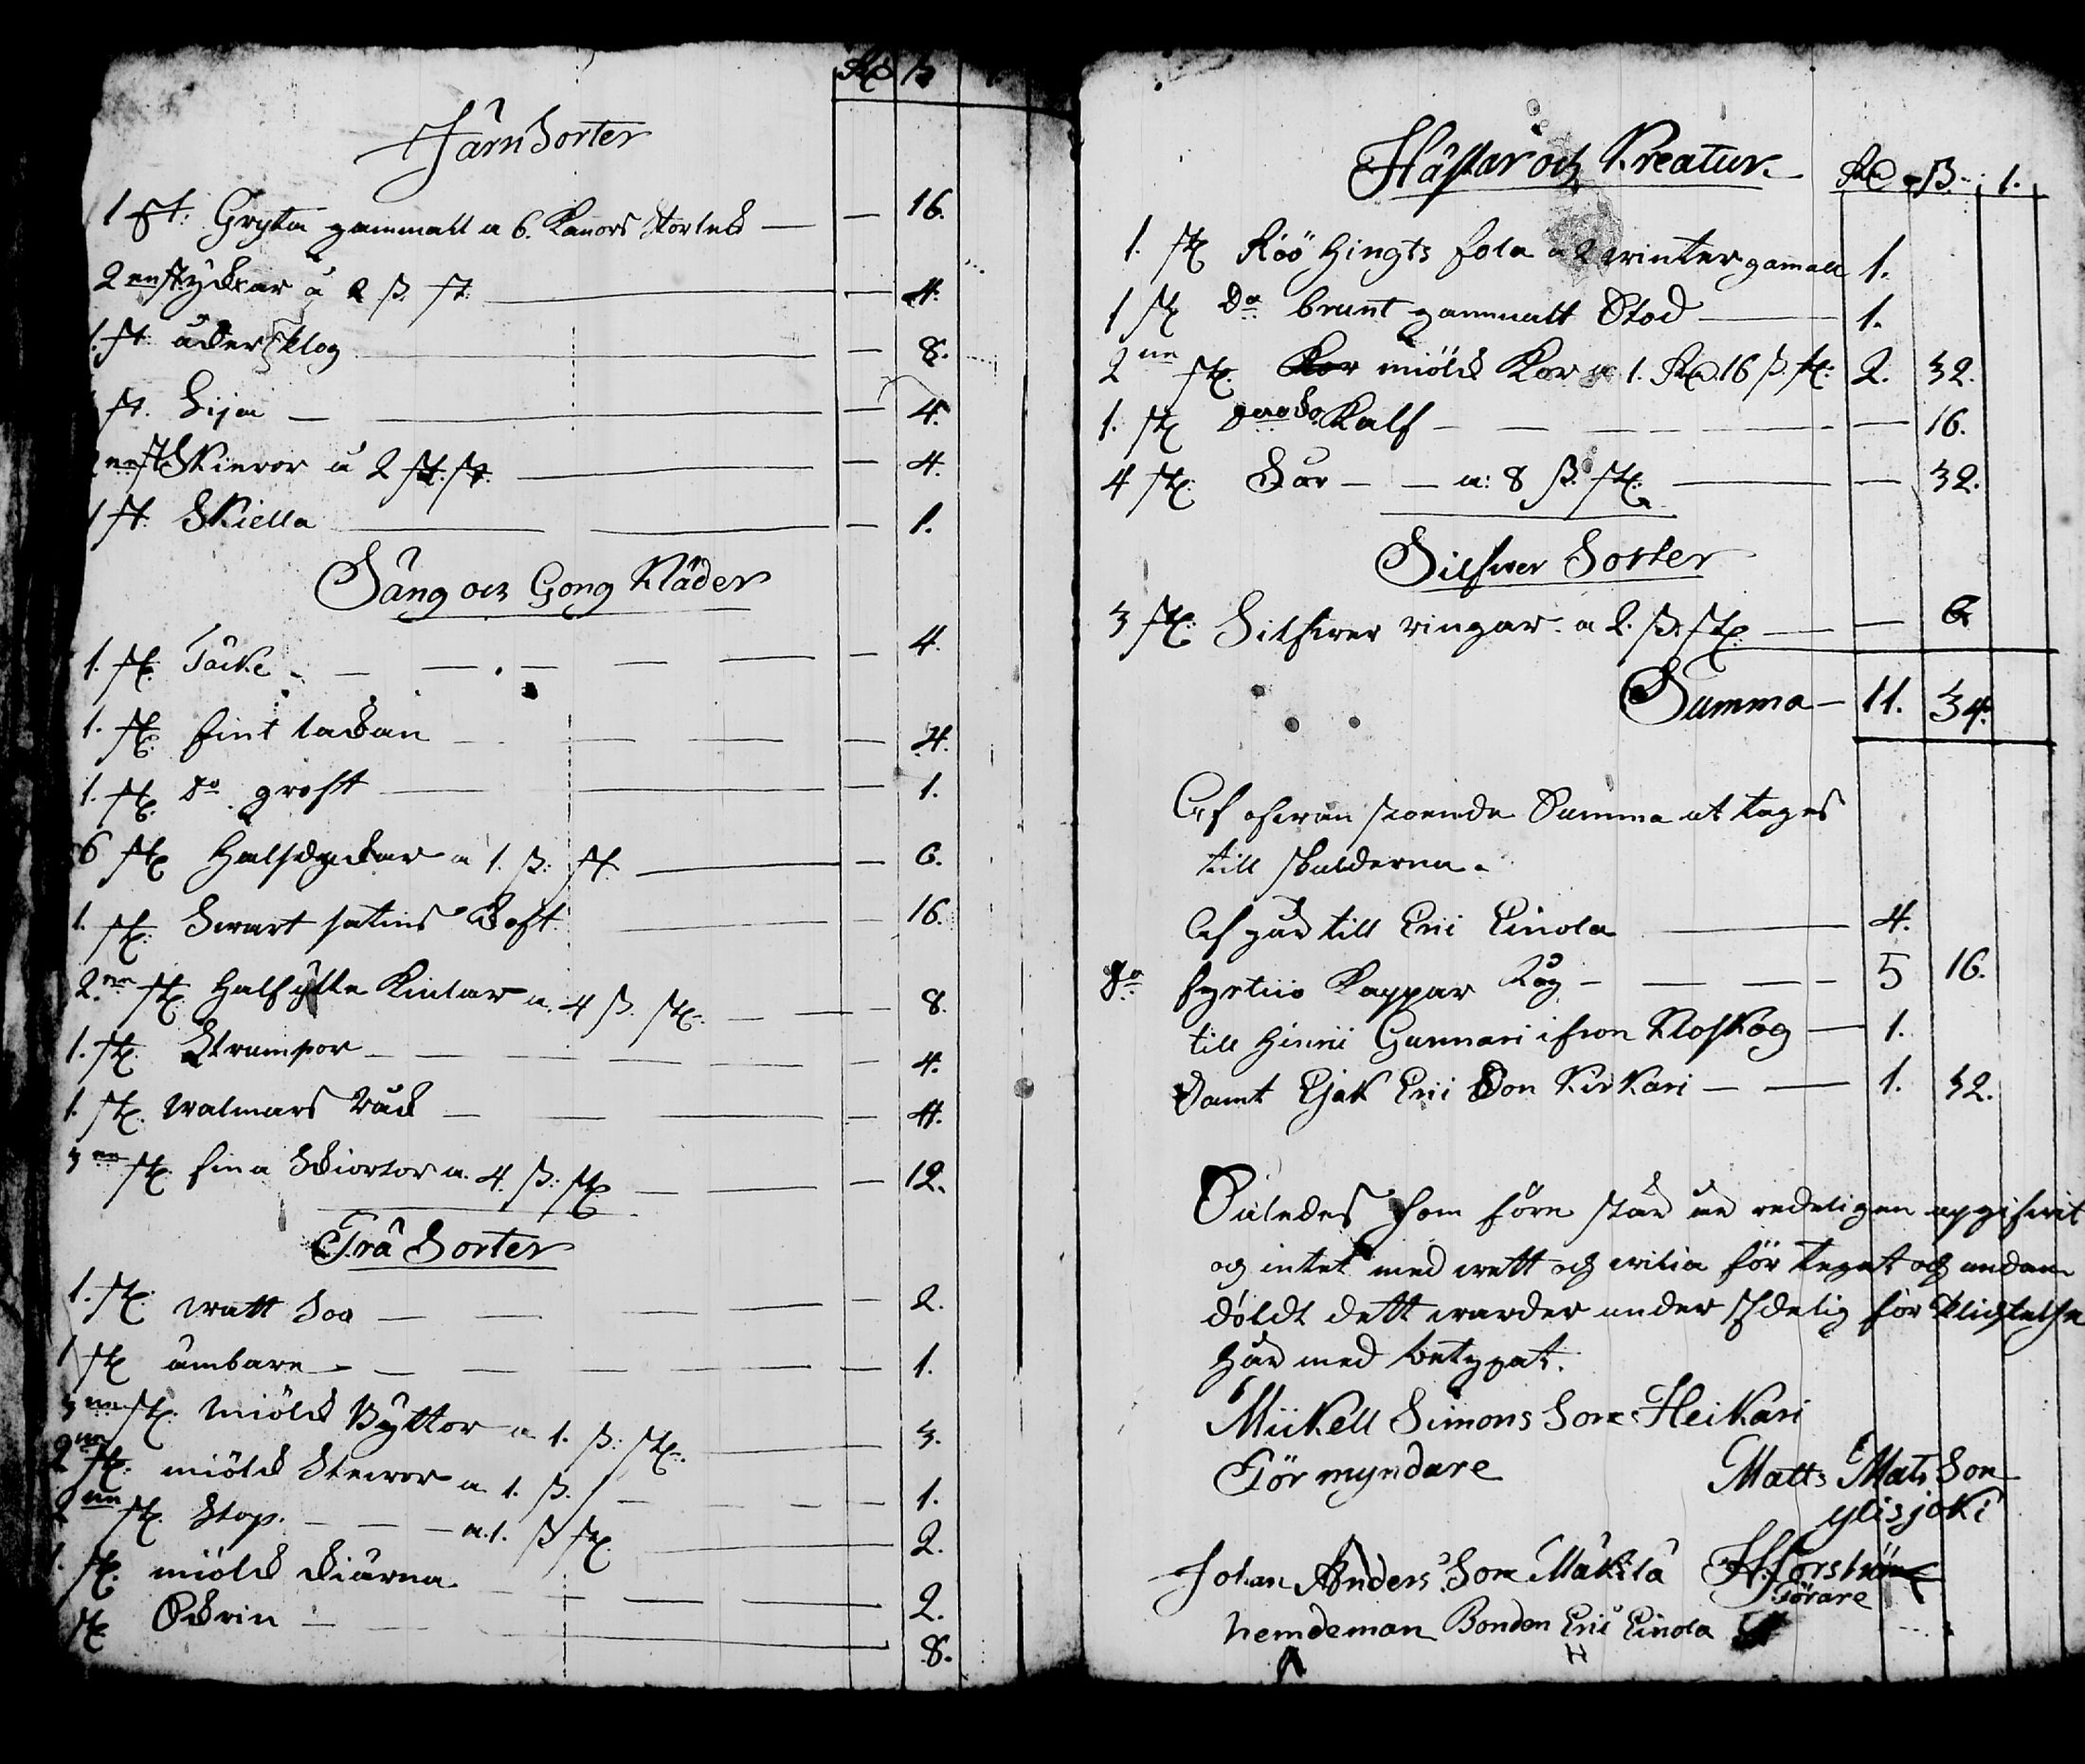 Rd ß
Järn Sorter
1 st: Gryta gammall a 6. Kanors Storleck — — 16.
2 en styckiar á 2 ß. st — 4.
1. st åker klog — 8.
st. Lija — 4.
en st Skieror á 2 st. st. — 4.
1 st. Skiella — 1.
Säng och Gong Kläder
1. st. Täcke — 4.
1. st. fint lackan — 4.
1. st. do groft — 1.
6 st Halsdyckar a 1. ß: st. — 6.
1. st. Swart satins Koft — 16.
2.ne st. Halfylle Kiolar a. 4 ß. st. — 8.
1. st. Strumpor — 4.
1. st. walmars Råck — 4.
3 ne st. fina Skiortor a. 4. ß: st — 12.
Trä Sorter
1. st. watt Soo — 2.
1 st ämbare — 1.
3 ne st. miölck Byttor a 1. ß: st. — 3.
2 ne st. miölck Stewor a 1. ß. — 1.
2 ne st. Stop. — a. 1. ß st. — 2.
1. st. miölck kiärna — 2.
st. Skrin — 8.
Hästar och Kreatur. Rd ß 1.
1. st Röö Hingts fola a 2 winter gamall 1.
1 st Do brunt gammalt Stod — 1.
2 ne st. Kor miölck Kor a 1. Rd 16 ß st: 2. 32.
1. st Kalf — 16.
4 st. Får — a: 8 ß. st. — 32.
Silfwer Sorter
3 st. Silfwer ringar a 2. ß. st. — 6
Summa — 11. 34.
Af ofwan stoende Summa at tages
till skulderna.
Af går till Eric Einola — 4.
do fyrtiio Kappar Råg — 5 16.
till Hinric Gunnari ifron Kloskog — 1.
Samt Isak Eric Son Kirkari — 1. 32.
Således som före står är redeligen uppgifwit
og intet med wett och wilia för tegat och undan
döldt dett warder under Edelig för plicktelse
här med betygat.
Mickell Simons Son Heikari
För myndare
Matts Mats Son
ylisjoki
Johan Anders Son Mäkilä H: Forström
Förare
Nemdeman Bonden Eric Einola